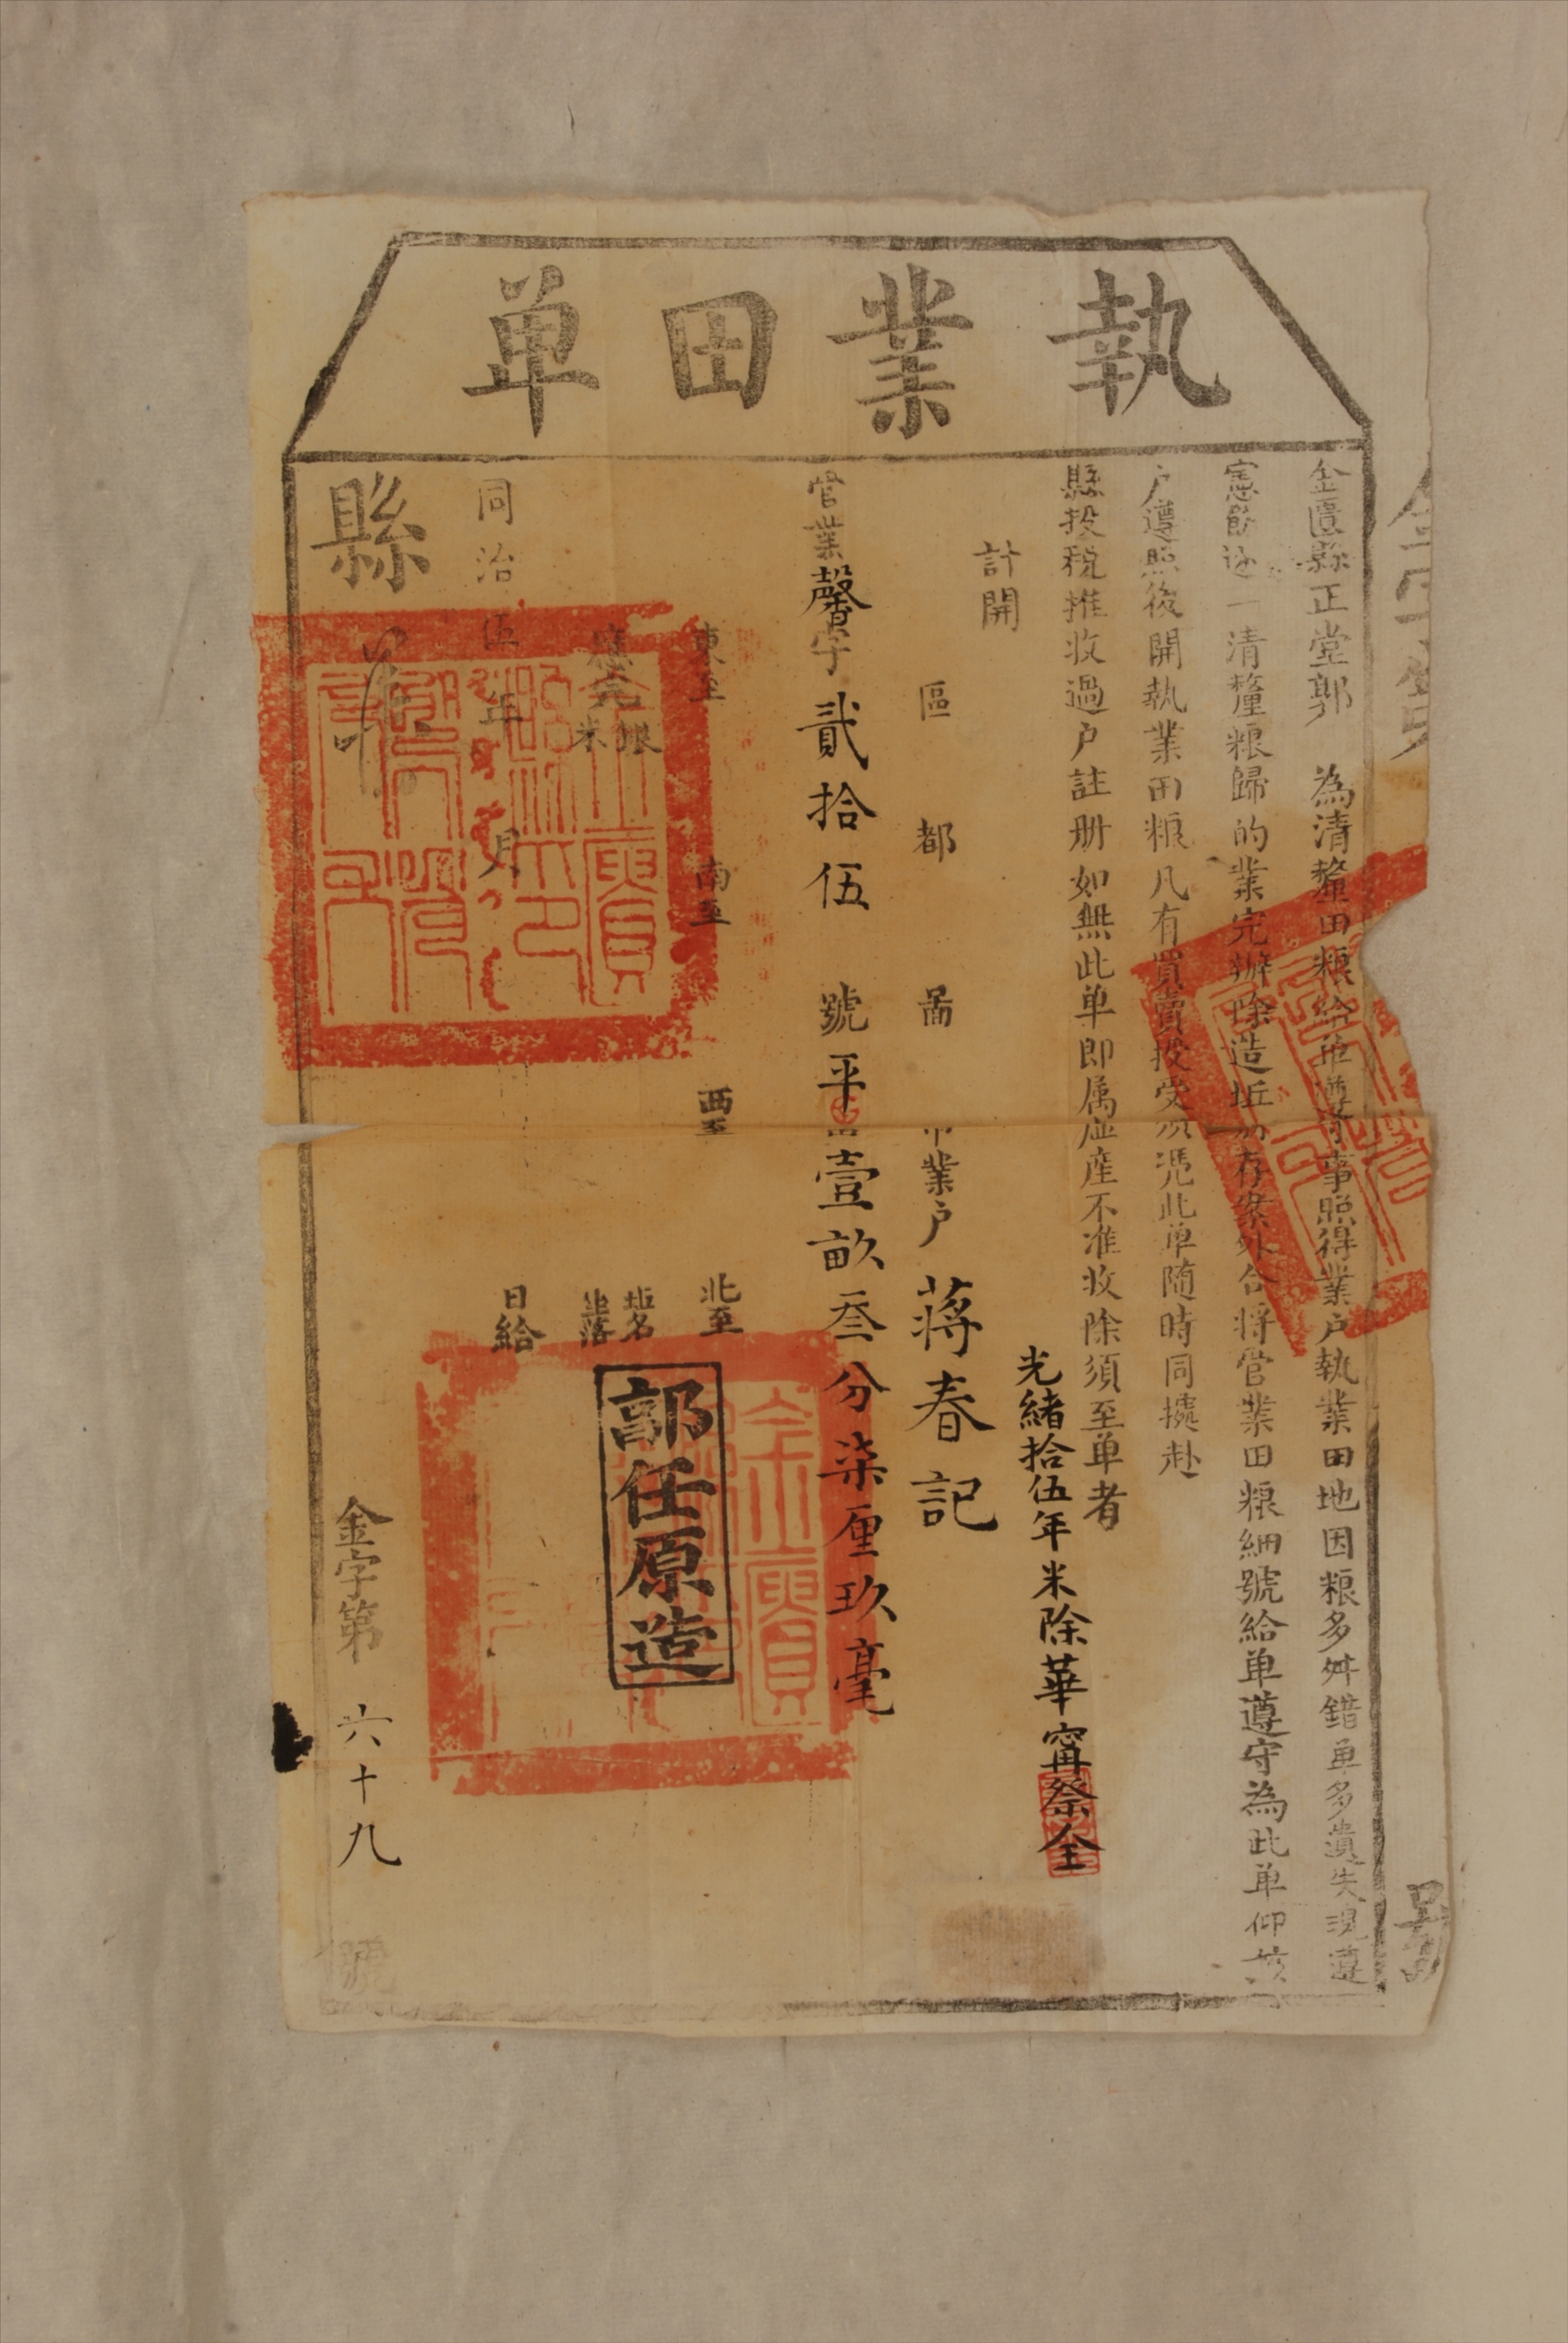 執業田单
金匱縣正堂郭　為清釐田粮給单遵守事照得業户執業田地因粮多舛錯单多遺失現遵
憲飭逐一清釐粮歸的業完辦除造坵册存案外合将管業田粮細號給单遵守為此单仰該
户遵照後開執業田粮凡有買賣授受以凴此单随時同擄赴
縣投税推收過户註册如無此单即属虚産不准收除須至单者
光緒拾伍年米除華甯祭全
計開
區　都　啚　業户蔣春記
管業馨字貳拾伍　號平田壹畝叁分柒厘玖毫
東至　南至　西至　北至
應完銀米　坵名坐落
郭任原造
同治伍年　月　日給
縣
金字第　六十九　號